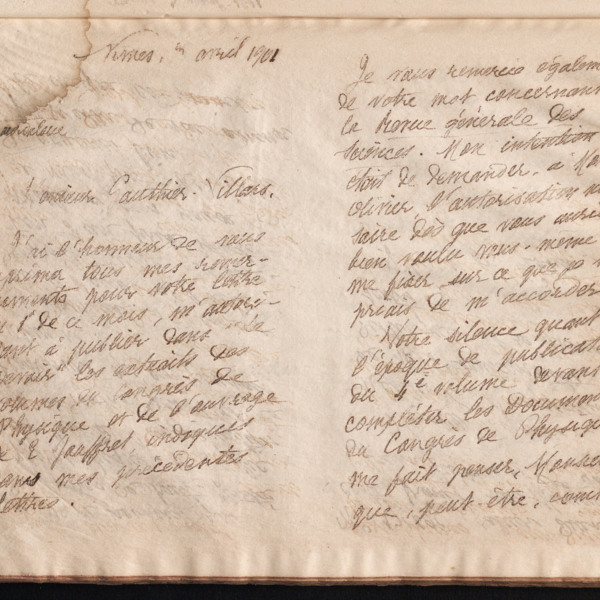 Nimes, avril 1901
Monsieur Gauthier-Villars,
J'ai l'honneur de vous
exprimer tous mes remer-
ciements pour votre lettre
du 1er de ce mois, m'autori-
sant à publier dans "le
les extraits des
sommes du Congrès de
Physique et de l'ouvrage
de E. Jouffret indiqués
dans mes précédentes
lettres.
Je vous remercie égalem
de votre mot concernant
la Revue générale des
Sciences. Mon intention
était de demander, à M.
Olivier, l'autorisation
saire dès que vous auriez
bien voulu vous-même
me fixer sur ce que je v
priais de m'accorder
Votre silence quant
l'époque de publicat
du 4e volume devant
compléter les Documen
du Congrès de Physiqu
me fait penser, Monsie
que, peut-être, comm